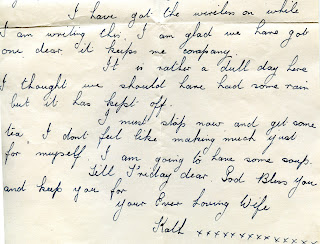 I have got the wireless on while
I am writing this. I am glad we have got
one dear it keeps me company.
It is rather a dull day here
I thought we should have had some rain
but it has kept off.
I must stop now and get some
tea I dont feel like making much just
for myself I am going to have some soup.
Till Friday dear. God Bless You
and keep you for
your Ever Loving Wife
Kath x x x x x x x x x x x